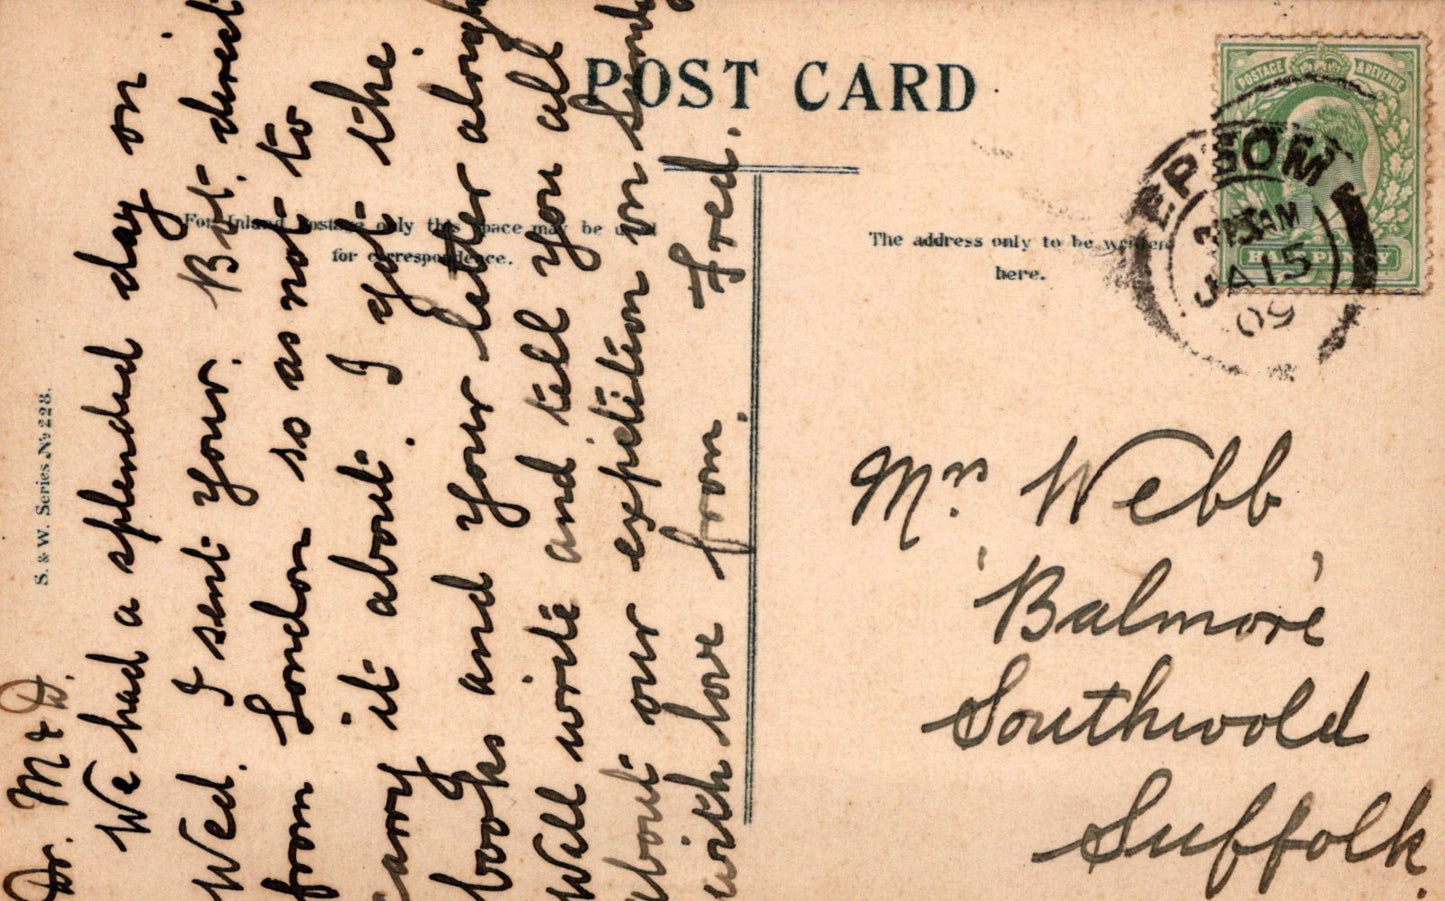 POST CARD
For Inland Postage only this space may be used
for correspondence.
The address only to be written
here.
S. & W. Series. No 228.
POSTAGE & REVENUE
HALFPENNY
EPSOM
AM
JA 15
09
Dr. M & D.
We had a splended day on
Wed. I sent your. Bot. direct
from London so as not to
carry it about. I got the
books and your letter alongh
Will write and tell you all
about our expetition on Sunday
with love from. Fred.
Mrs. Webb
'Balmore'
Southwold
Suffolk.